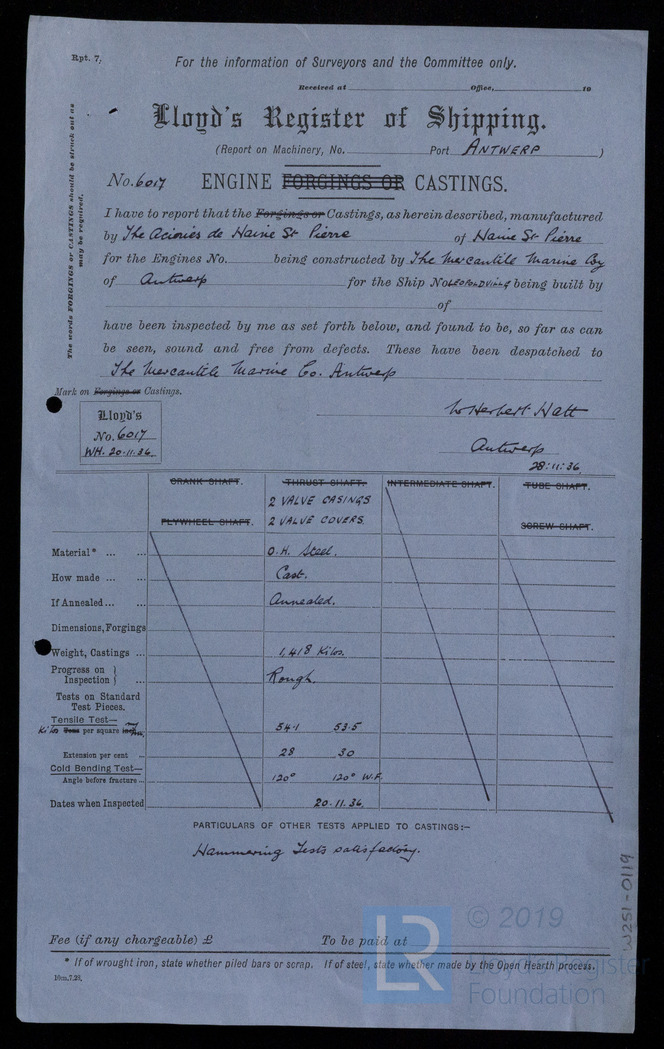 Rpt. 7.
For the information of Surveyors and the Committee only.
Received at Office, 19
Lloyd's Register of Shipping.
(Report on Machinery, No. Port ANTWERP )
The words FORGINGS or CASTINGS should be struck out as may be required.
No. 6017 ENGINE FORGINGS OR CASTINGS.
I have to report that the Forgings or Castings, as herein described, manufactured
by The Acieries de Haine St Pierre of Haine St Pierre
for the Engines No. being constructed by The Mercantile Marine Coy
of Antwerp for the Ship No LEOPOLDVILLE being built by
of
have been inspected by me as set forth below, and found to be, so far as can
be seen, sound and free from defects. These have been despatched to
The Mercantile Marine Co. Antwerp
Mark on Forgings or Castings.
Lloyd's
No. 6017
WH. 20.11.36.
W Herbert Hatt
Antwerp
28:11:36.
CRANK SHAFT. THRUST SHAFT. INTERMEDIATE SHAFT. TUBE SHAFT.
2 VALVE CASINGS
FLYWHEEL SHAFT. 2 VALVE COVERS. SCREW SHAFT.
Material* ... ... O.H. Steel.
How made ... ... Cast.
If Annealed ... ... Annealed.
Dimensions, Forgings
Weight, Castings ... 1,418 Kilos.
Progress on Inspection } ... Rough.
Tests on Standard
Test Pieces.
Tensile Test—
Kilos Tons per square inch 54.1 53.5
Extension per cent ... 28 30
Cold Bending Test—
Angle before fracture ... 120° 120° W.F.
Dates when Inspected 20.11.36.
PARTICULARS OF OTHER TESTS APPLIED TO CASTINGS:—
Hammering Tests satisfactory.
W251-0119
Fee (if any chargeable) £ To be paid at
* If of wrought iron, state whether piled bars or scrap. If of steel, state whether made by the Open Hearth process.
LR
© 2019
Lloyd's Register
Foundation